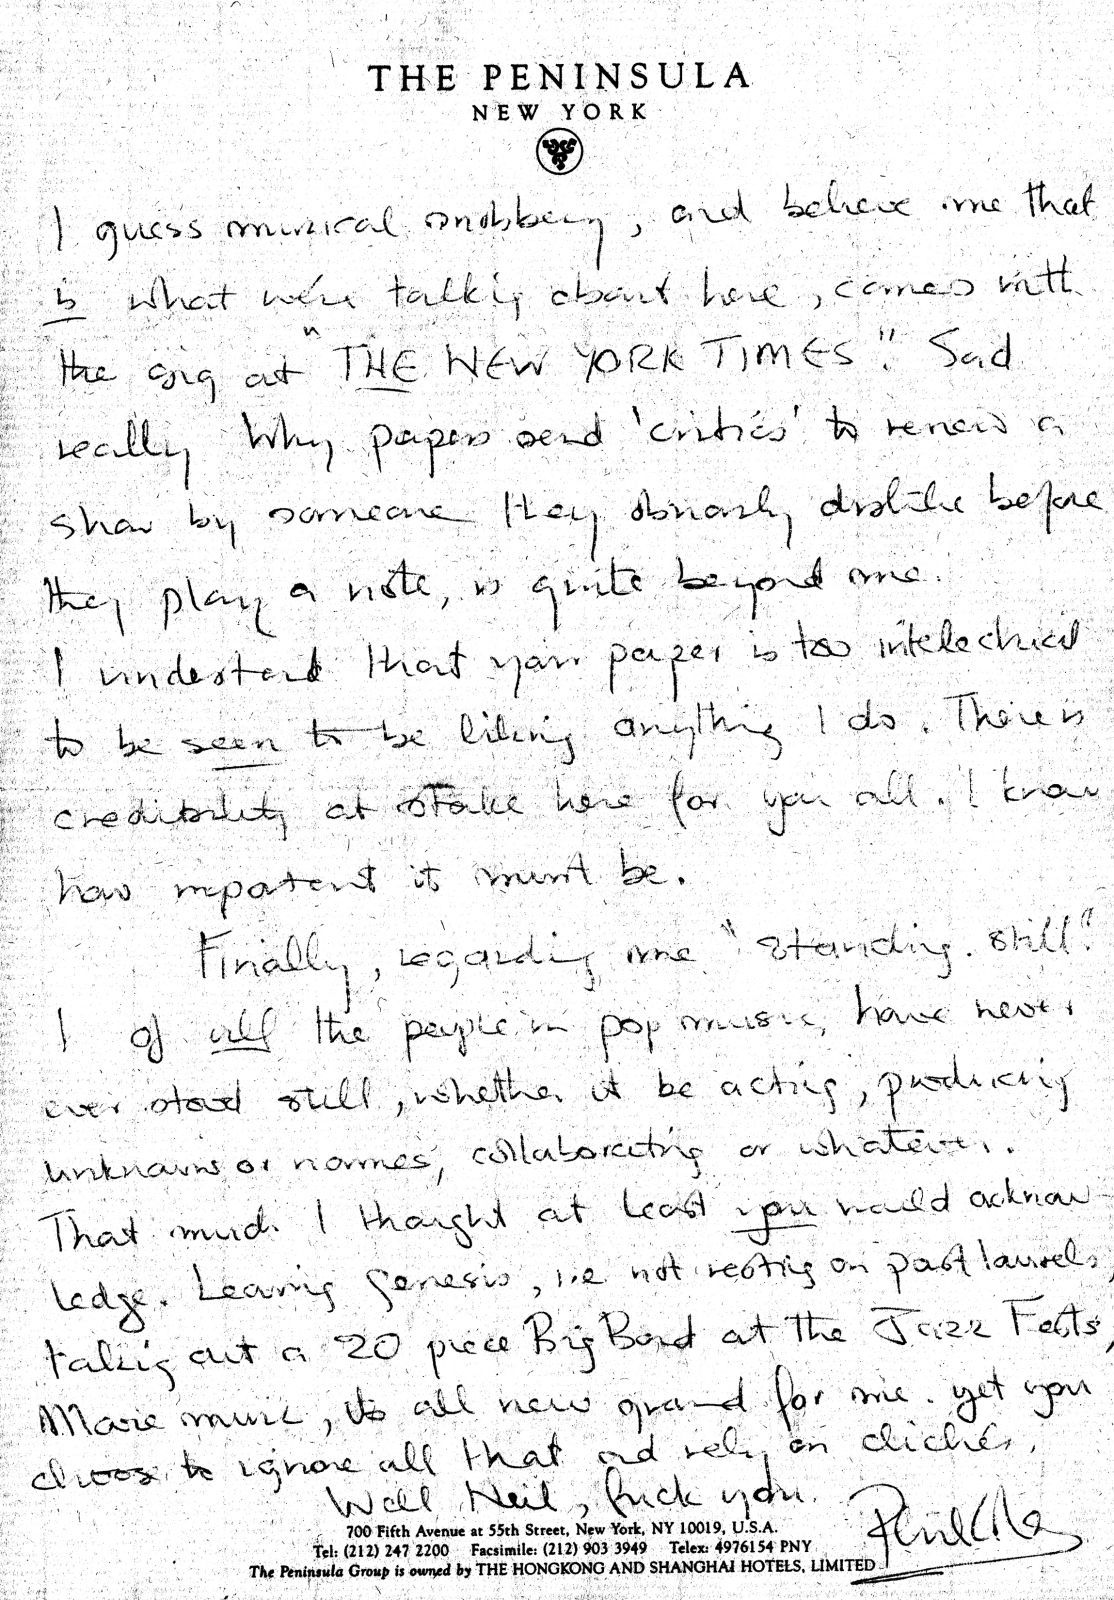 THE PENINSULA
NEW YORK
I guess musical snobbery, and believe me that
is what we're talking about here, comes with
the gig at "THE NEW YORK TIMES". Sad
really. Why papers send 'critics' to review a
show by someone they obviously dislike before
they play a note, is quite beyond me.
I understand that your paper is too intelectual
to be seen to be liking anything I do. There is
credibility at stake here for you all. I know
how important it must be.
Finally, regarding me "standing still".
I of all the people in pop music, have never
ever stood still, whether it be acting, producing
unknowns or names, collaborating or whatever.
That much I thought at least you would acknow-
ledge. Leaving Genesis, i.e not resting on past laurels,
taking out a 20 piece Big Band at the Jazz Fests,
Movie music, its all new ground for me. yet you
choose to ignore all that and rely on clichés.
Well Neil, fuck you.
Phil Collins
700 Fifth Avenue at 55th Street, New York, NY 10019, U.S.A.
Tel: (212) 247 2200 Facsimile: (212) 903 3949 Telex: 4976154 PNY
The Peninsula Group is owned by THE HONGKONG AND SHANGHAI HOTELS, LIMITED